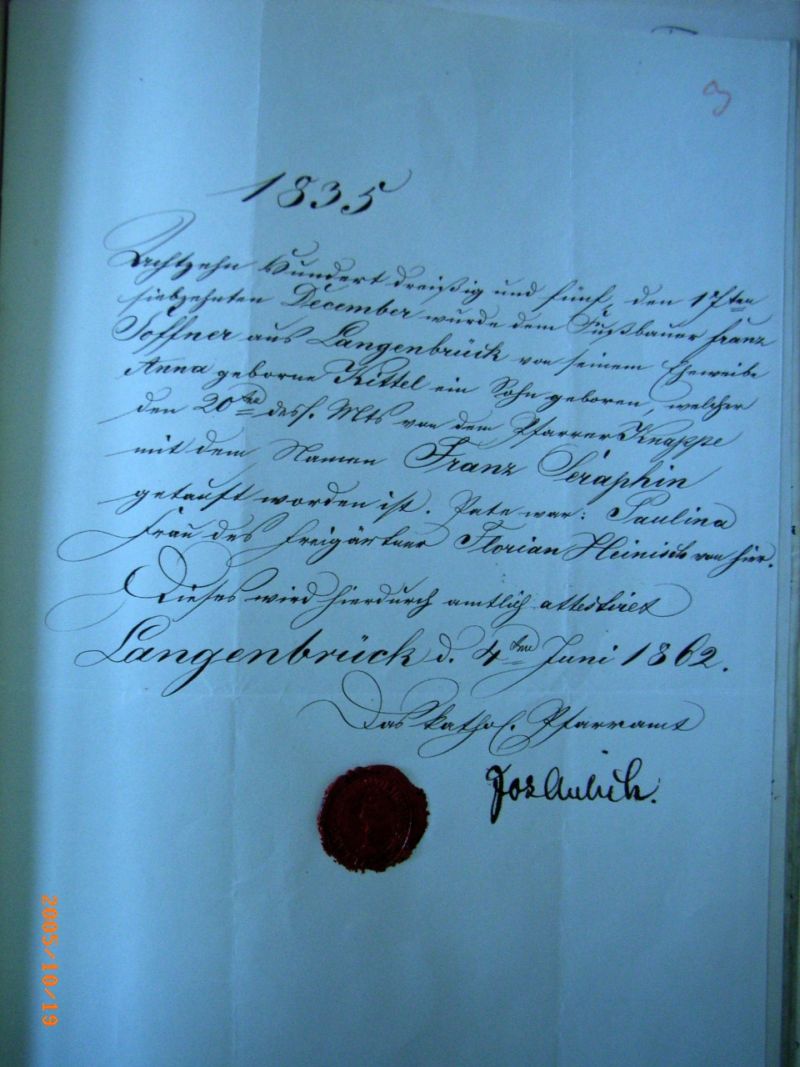 1835
Achtzehn Hundert dreißig und fünf, den 17ten
siebzehnten December wurde dem Franz
Soffner aus Langenbrück von seinem Eheweibe
Anna geborne Kittel ein Sohn geboren, welcher
den 20ten dess. Mts von dem Pfarrer Knappe
mit dem Namen Franz Seraphin
getauft worden ist. Pate war: Paulina
Frau des Freigärtner Florian Heinisch von hier.
Dieses wird hierdurch amtlich attestiret
Langenbrück d. 4ten Juni 1862.
Das kathol. Pfarramt
2005/10/19